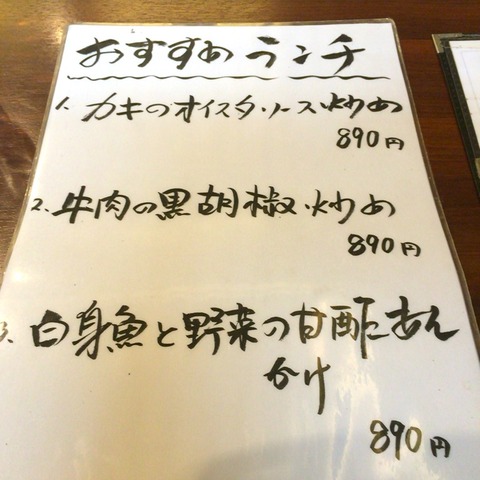 おすすめランチ
1. カキのオイスタソース炒め
890円
2. 牛肉の黒胡椒炒め
890円
3. 白身魚と野菜の甘酢あん
かけ
890円